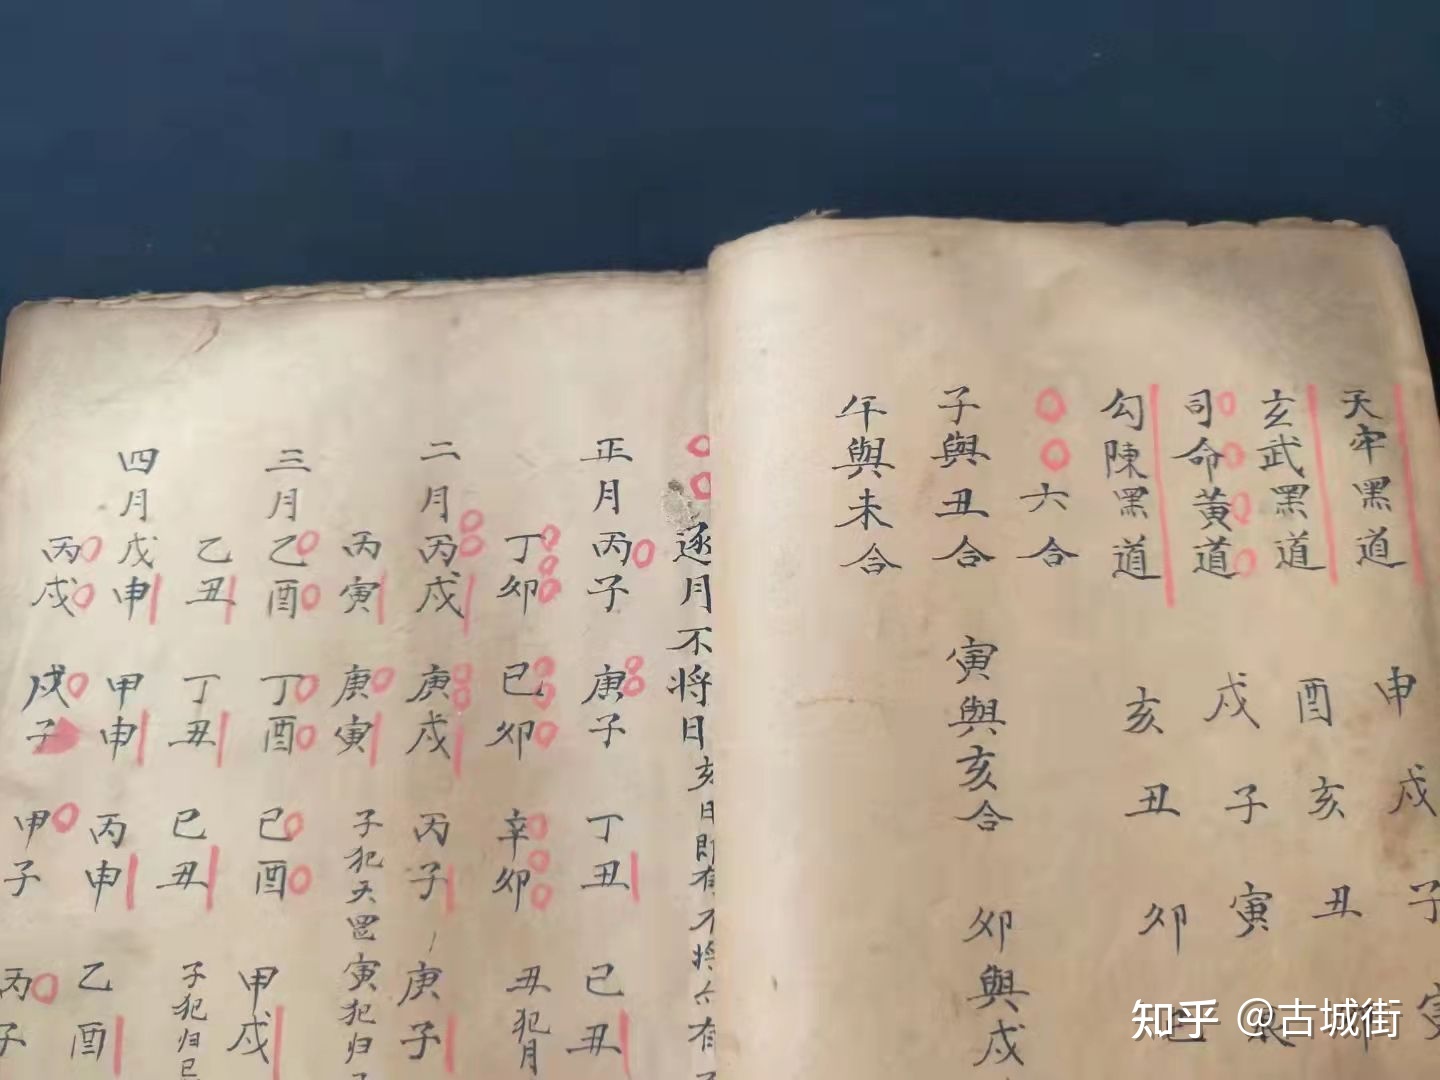 天牢黑道 申 戌 子 寅
玄武黑道 酉 亥 丑 卯
司命黃道 戌 子 寅
勾陳黑道 亥 丑 卯 巳
六合
子與丑合 寅與亥合 卯與戌
午與未合
逐月不將日 亥日即有不將亦有
正月 丙子 庚子 丁丑 己丑
丁卯 己卯 辛卯 丑犯月
二月 丙戌 庚戌 丙子 庚子
丙寅 庚寅 子犯天罡寅犯归
三月 乙酉 丁酉 己酉 甲戌
乙丑 丁丑 己丑 子犯归忌
四月 戊申 甲申 丙申 乙酉
丙戌 戊子 甲子 丙子
知乎 @古城街